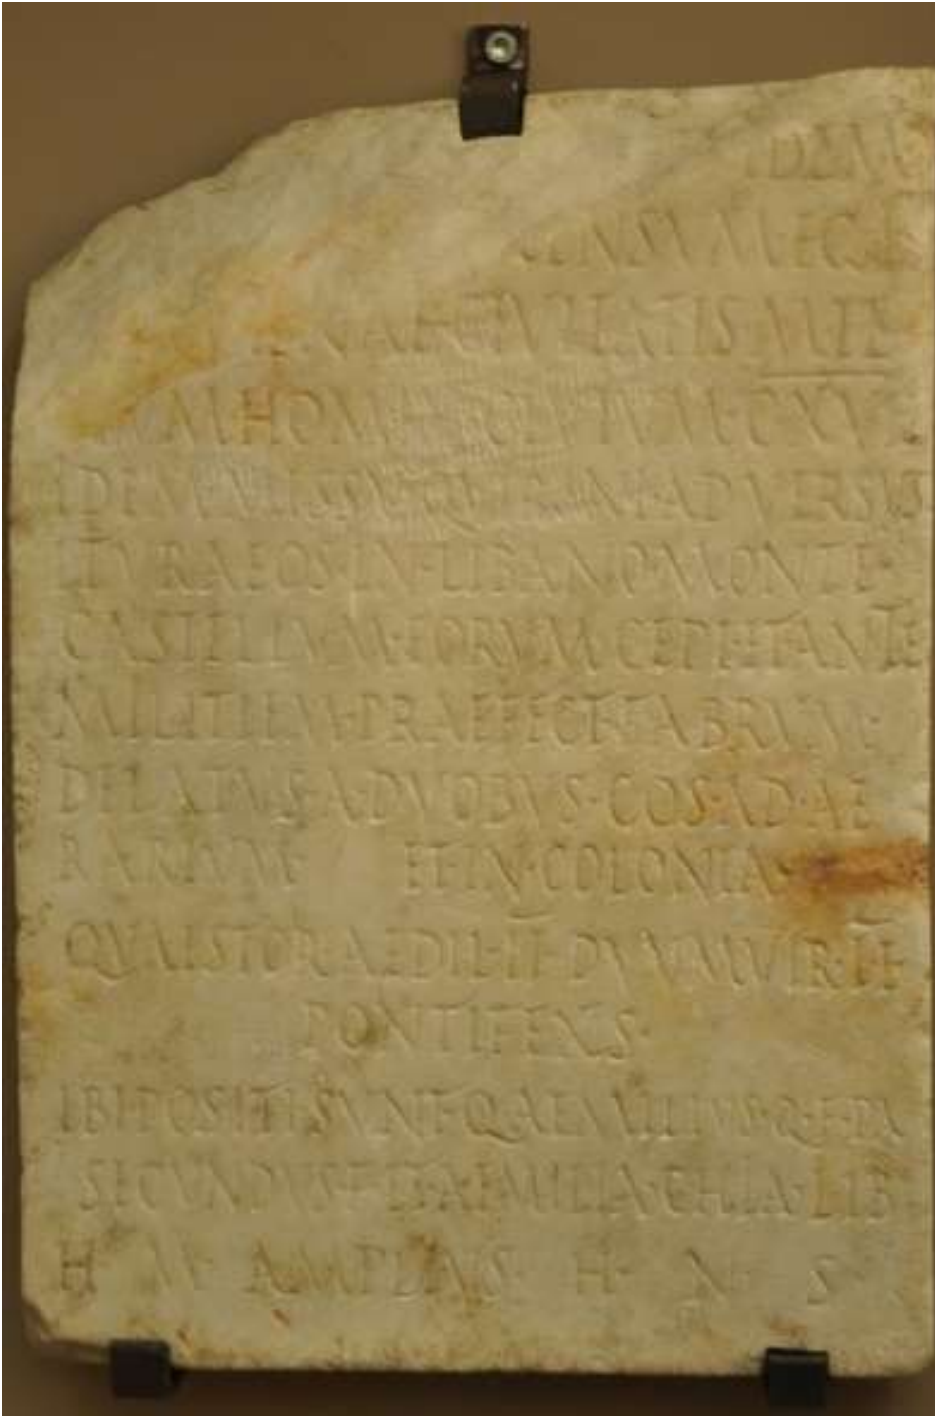 IDEM
CENSVM·EGI
CIVITATIS MIL
HOMIN CIVIVM·CXVII
IDEM·MISSV·QVIRINI·ADVERSVS
ITVRAEOS·IN·LIBANO·MONTE·
CASTELLVM·EORVM·CEPI·ET·ANTE
MILITIEM·PRAEFECT·FABRVM·
DELATVS·A·DVOBVS·COS·AD·AE
RARIVM· ET·IN·COLONIA·
QVAESTOR·AEDIL·II·DVVMVIR·II·
PONTIFEXS·
IBI·POSITI·SVNT·Q·AEMILIVS·Q·F·PAL
SECVNDVS·F·ET·AEMILIA·CHIA·LIB
H· M· AMPLIVS· H· N· S·